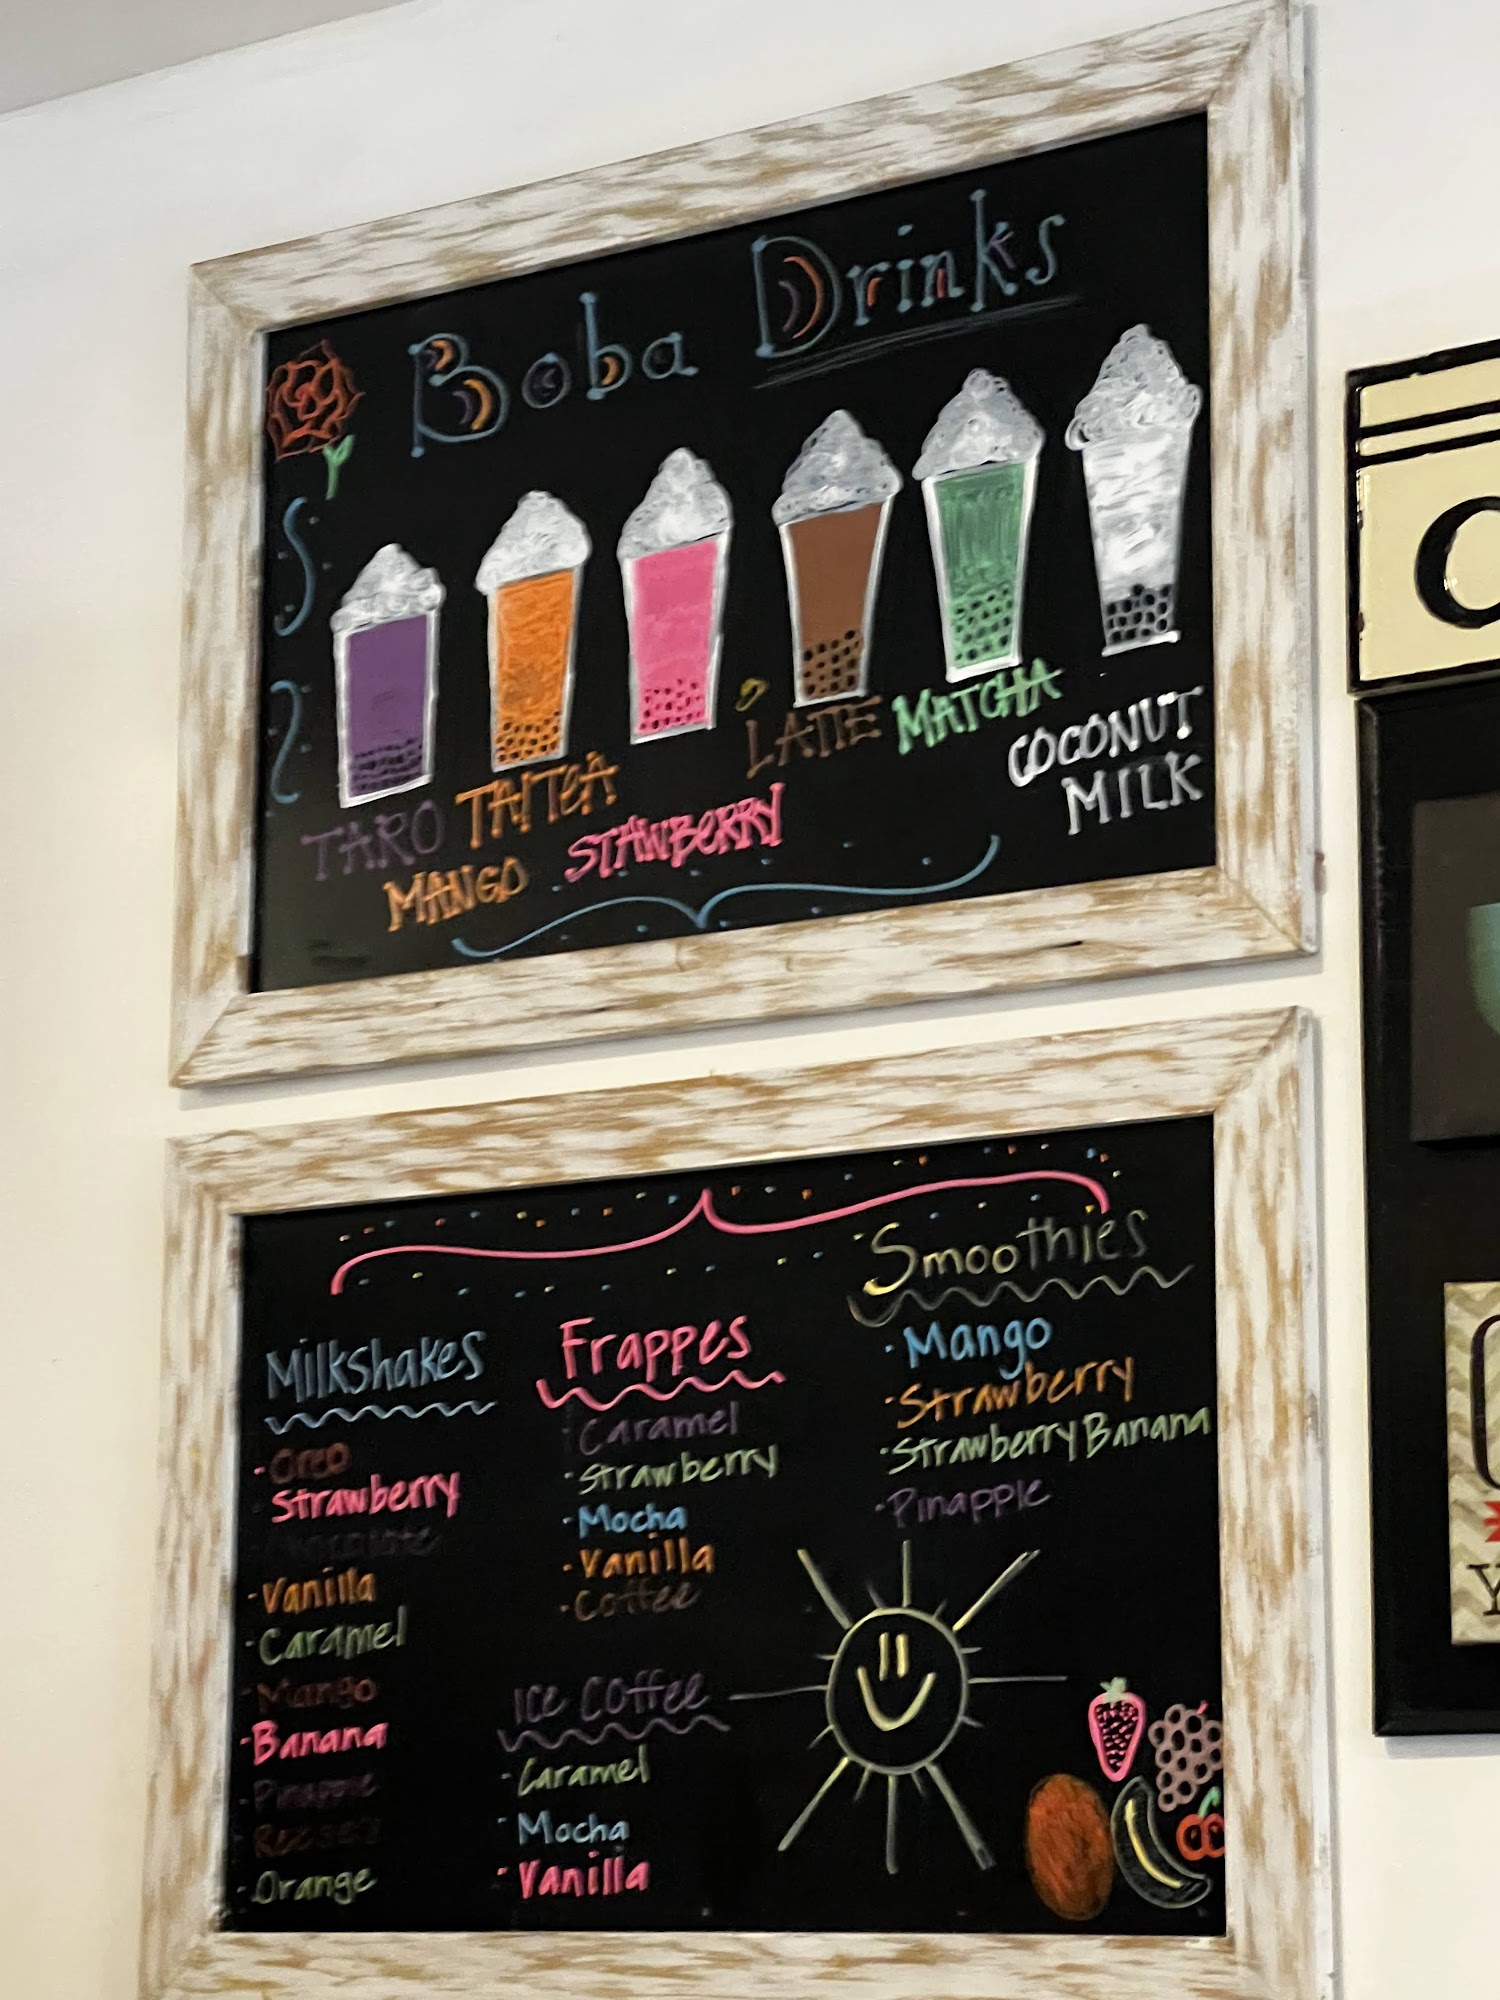 Boba Drinks
TARO
TAITEA
MANGO
STAWBERRY
LATTE
MATCHA
COCONUT
MILK
Milkshakes
· Oreo
Strawberry
Chocolate
· Vanilla
· Caramel
· Mango
· Banana
· Pinapple
· Reeses
· Orange
Frappes
· Caramel
· Strawberry
· Mocha
· Vanilla
· Coffee
Ice Coffee
· Caramel
· Mocha
· Vanilla
Smoothies
· Mango
· Strawberry
· Strawberry Banana
· Pinapple